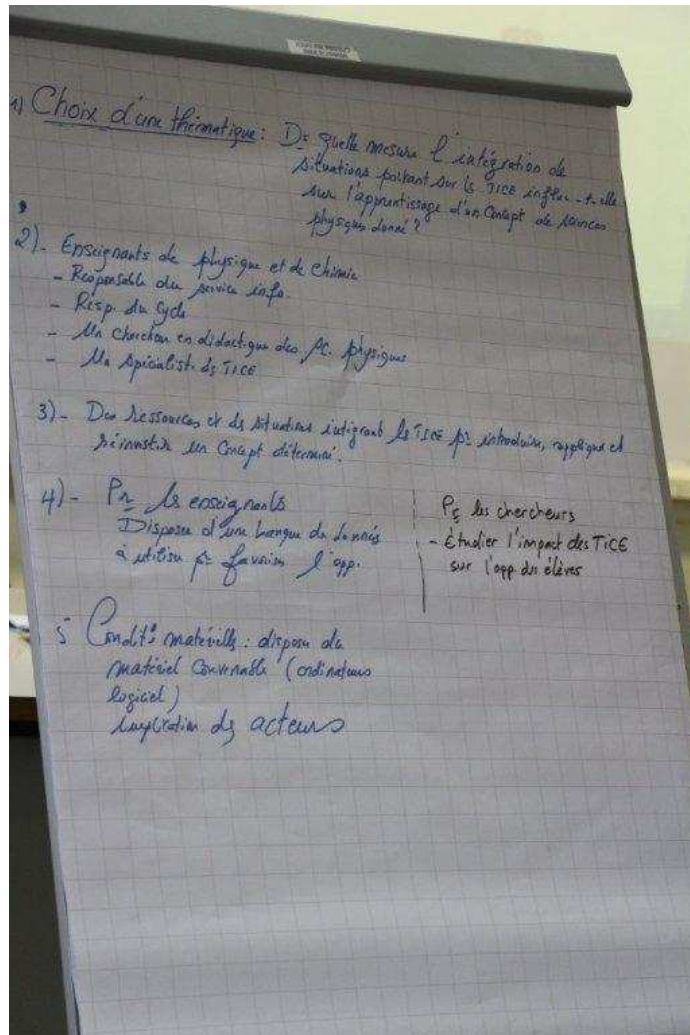 1) Choix d'une thématique : Ds quelle mesure l'intégration de
situations portant sur les TICE influe-t-elle
sur l'apprentissage d'un concept de sciences
physiques donné ?
2)- Enseignants de physique et de chimie
- Responsable du service info.
- Resp. du cycle
- Un chercheur en didactique des Sc. physiques
- Un spécialiste ds TICE
3)- Des ressources et ds situations intégrant ls TICE pr introduire, appliquer et
réinvestir un concept déterminé.
4)- Pr ls enseignants
Disposer d'une banque de données
à utiliser pr favoriser l'app.
Pr les chercheurs
- Étudier l'impact des TICE
sur l'app des élèves
5 Condits matérielles : disposer du
matériel convenable (ordinateurs
logiciel)
Implication ds acteurs